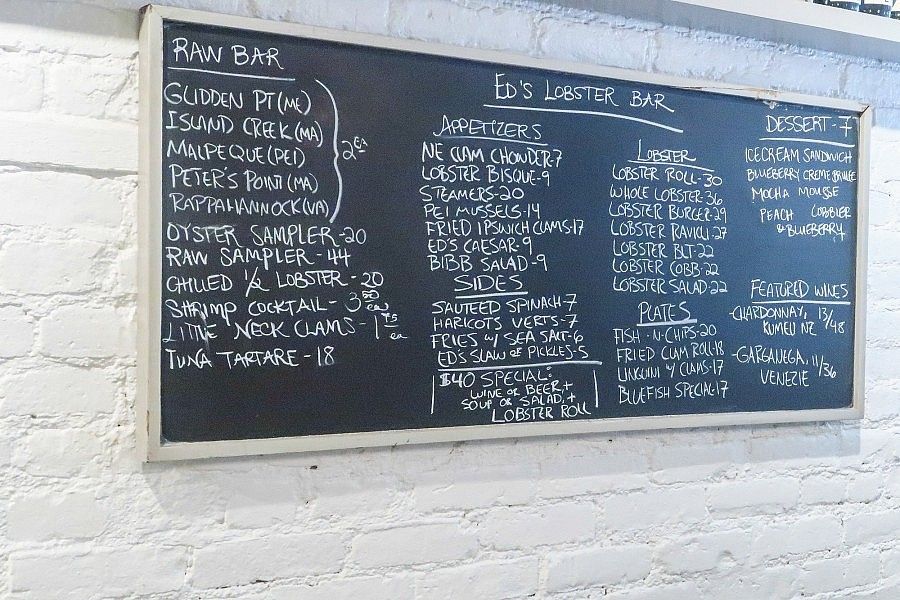 RAW BAR
GLIDDEN PT (ME)
ISLAND CREEK (MA)
MALPEQUE (PEI)
PETER'S POINT (MA)
RAPPAHANNOCK (VA)
2 ea
OYSTER SAMPLER - 20
RAW SAMPLER - 44
CHILLED 1/2 LOBSTER - 20
SHRIMP COCKTAIL - 3 50 ea
LITTLE NECK CLAMS - 1 75 ea
TUNA TARTARE - 18
ED'S LOBSTER BAR
APPETIZERS
NE CLAM CHOWDER-7
LOBSTER BISQUE-9
STEAMERS-20
PEI MUSSELS-14
FRIED IPSWICH CLAMS-17
ED'S CAESAR-9
BIBB SALAD-9
SIDES
SAUTEED SPINACH-7
HARICOTS VERTS-7
FRIES W/ SEA SALT-6
ED'S SLAW OR PICKLES-5
$40 SPECIAL:
WINE OR BEER, +
SOUP OR SALAD, +
LOBSTER ROLL
LOBSTER
LOBSTER ROLL-30
WHOLE LOBSTER-36
LOBSTER BURGER-29
LOBSTER RAVIOLI-27
LOBSTER BLT-22
LOBSTER COBB-22
LOBSTER SALAD-22
PLATES
FISH-N-CHIPS-20
FRIED CLAM ROLL-18
LINGUINI W/ CLAMS-17
BLUEFISH SPECIAL-17
DESSERT-7
ICECREAM SANDWICH
BLUEBERRY CREME BRULEE
MOCHA MOUSSE
PEACH COBBLER
& BLUEBERRY
FEATURED WINES
-CHARDONNAY, 13/48
KUMEU NZ
-GARGANEGA, 11/36
VENEZIE